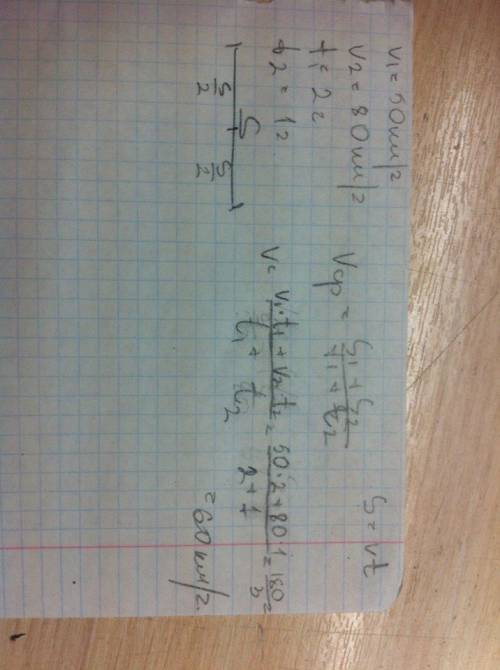 v₁ = 50 км/г
v₂ = 80 км/г
t₁ = 2г
t₂ = 1г
S/2 S S/2
S = vt
Vср = (S₁ + S₂)/(t₁ + t₂)
V = (v₁·t₁ + v₂t₂)/(t₁ + t₂) = (50·2 + 80·1)/(2 + 1) = 180/3 =
= 60 км/г.